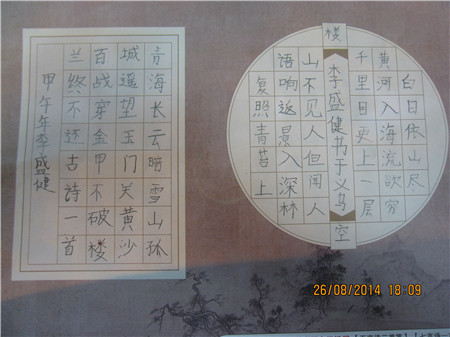 青海长云暗雪山孤
城遥望玉门关黄沙
百战穿金甲不破楼
兰终不还古诗一首
甲午年李盛健
白日依山尽
黄河入海流欲穷
千里目更上一层
楼
李盛健书于义乌
空
山不见人但闻人
语响返景入深林
复照青苔上
26/08/2014 18:09